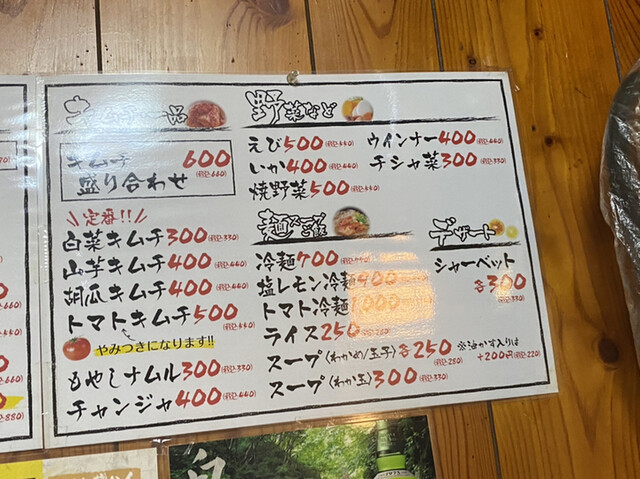 キムチ一品
キムチ
盛り合わせ
600
(税込660)
定番!!
白菜キムチ300(税込330)
山芋キムチ400(税込440)
胡瓜キムチ400(税込440)
トマトキムチ500(税込550)
やみつきになります!!
もやしナムル300(税込330)
チャンジャ400(税込440)
野菜など
えび500(税込550)
いか400(税込440)
焼野菜500(税込550)
ウインナー400(税込440)
チシャ菜300(税込330)
冷麺700
塩レモン冷麺900
トマト冷麺1,000
ライス250
スープ(わかめ/玉子)各250(税込280)
※油かす入りは
+200円(税込220)
スープ(わか玉)300(税込330)
デザート
シャーベット
各300
(税込330)